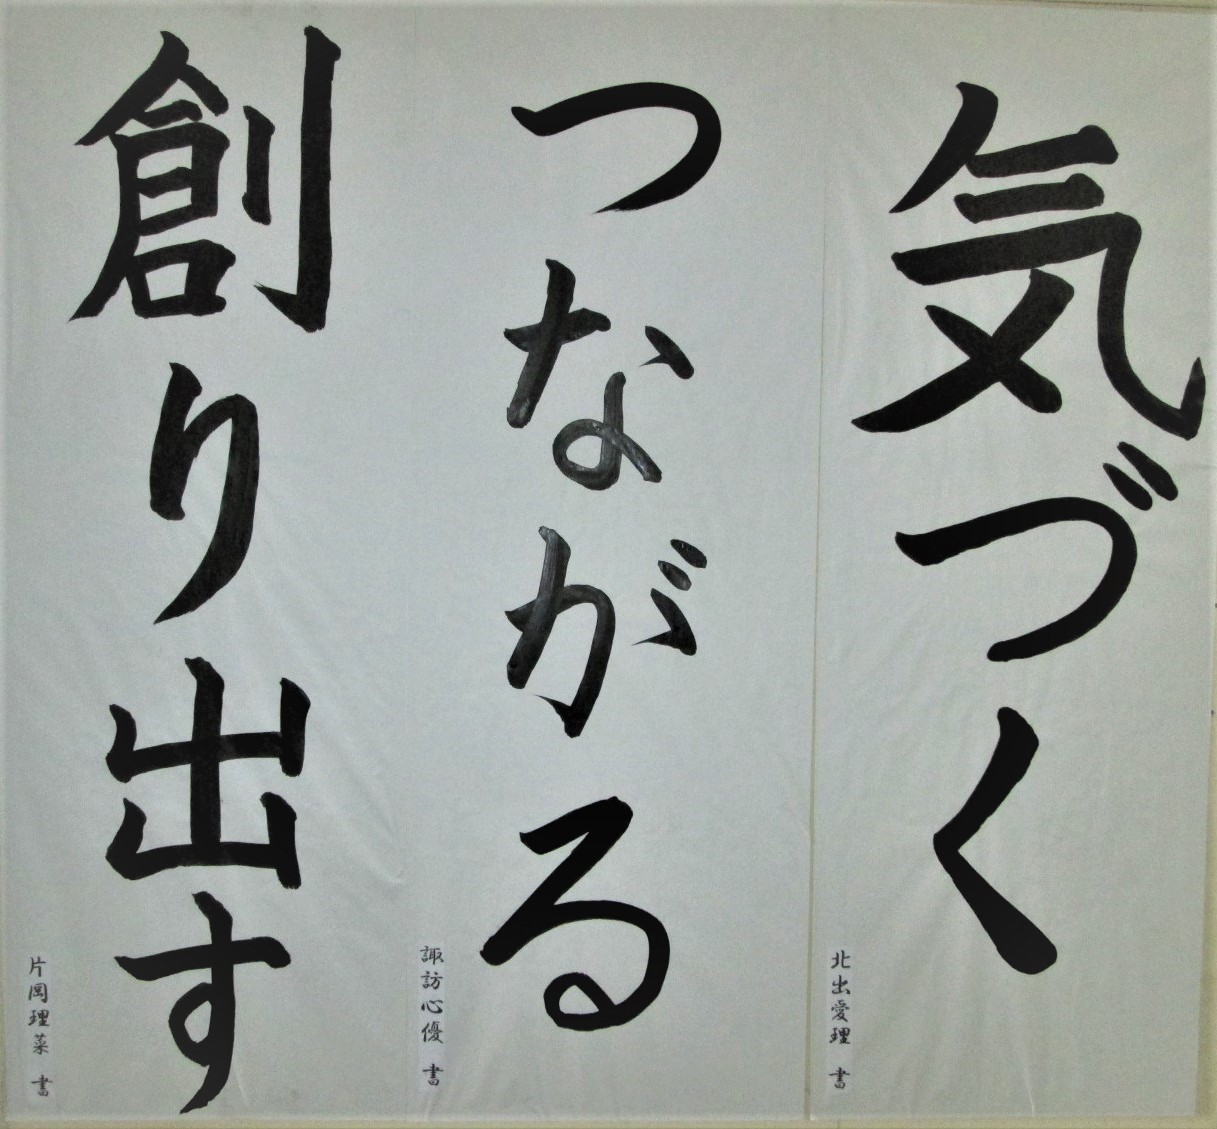 気づく
北出愛理 書
つながる
諏訪心優 書
創り出す
片岡理菜 書